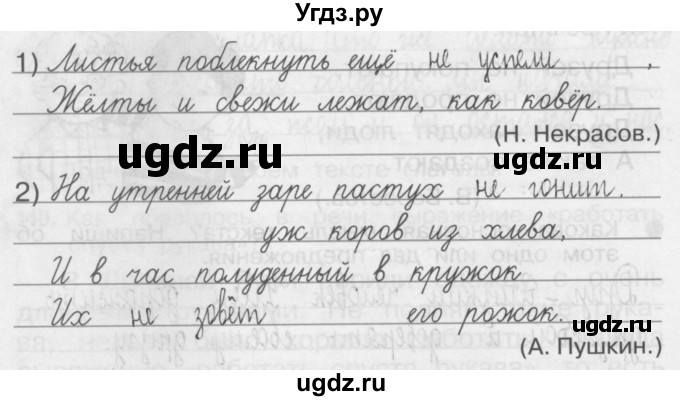 Угдз.ру
1) Листья поблекнуть ещё не успели,
Жёлты и свежи лежат, как ковёр.
(Н. Некрасов.)
ugdz.ru ugdz.ru
2) На утренней заре пастух не гонит
уж коров из хлева,
И в час полуденный в кружок
Их не зовёт его рожок.
(А. Пушкин.)
ugdz.ru ugdz.ru
ugdz.ru